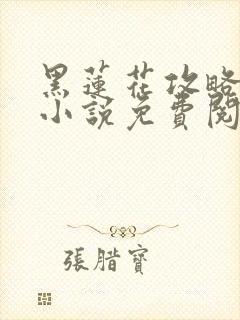 黑蓮花攻略
小說免費閱
張腊寶